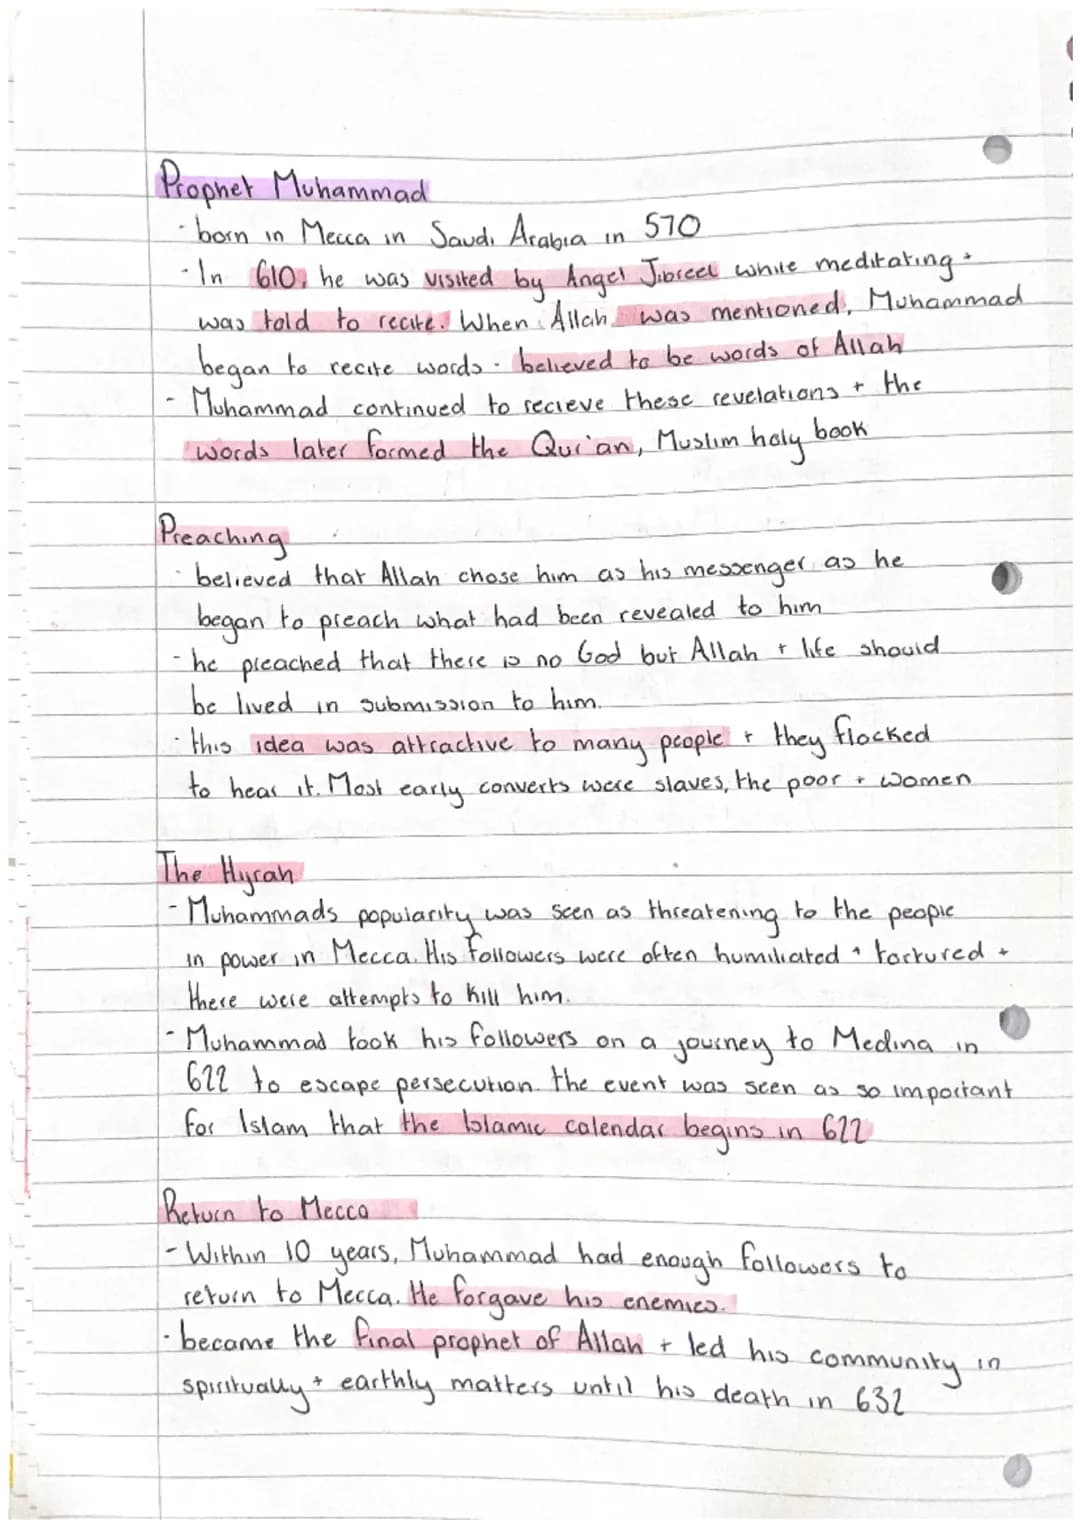 Prophet Muhammad
- born in Mecca in Saudi Arabia in 570
- In 610, he was visited by Angel Jibreel while meditating +
was told to recite. When Allah was mentioned, Muhammad
began to recite words - believed to be words of Allah
- Muhammad continued to recieve these revelations + the
words later formed the Qur'an, Muslim holy book
Preaching
- believed that Allah chose him as his messenger as he
began to preach what had been revealed to him
- he preached that there is no God but Allah + life should
be lived in submission to him.
- this idea was attractive to many people + they flocked
to hear it. Most early converts were slaves, the poor + women
The Hyrah
- Muhammads popularity was seen as threatening to the people
in power in Mecca. His followers were often humiliated + tortured +
there were attempts to kill him.
- Muhammad took his followers on a journey to Medina in
622 to escape persecution. the event was seen as so important
for Islam that the Islamic calendar begins in 622
Return to Mecca
- Within 10 years, Muhammad had enough followers to
return to Mecca. He forgave his enemies.
- became the final prophet of Allah + led his community in
spiritually + earthly matters until his death in 632